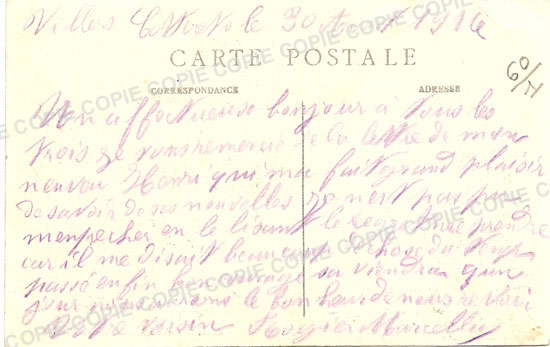 Villers Cotterets le 30 1914
CARTE POSTALE
CORRESPONDANCE ADRESSE
60/
Un affectueuse bonjour a vous les
trois je vous remercie de la lettre de mon
neveu Henri qui ma fait grand plaisir
de savoir de ses nouvelles je nest pas pu
menpecher en le lisant le
car il me disait beaucoup de chose du temps
passé enfin bon courage sa viendra que
jour nous aurons le bonheur de nous revoir
Votre cousin Rogier Marcellin
COPIE COPIE COPIE COPIE COPIE COPIE